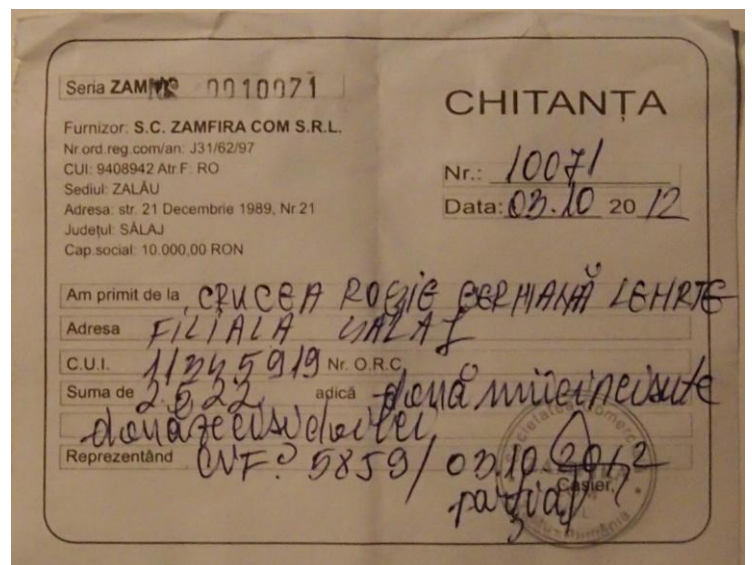 Seria ZAM 0010071
CHITANȚA
Furnizor: S.C. ZAMFIRA COM S.R.L.
Nr.ord.reg.com/an: J31/62/97
CUI: 9408942 Atr.F: RO
Sediul: ZALĂU
Adresa: str. 21 Decembrie 1989, Nr.21
Județul: SĂLAJ
Cap.social: 10.000,00 RON
Nr.: 10071
Data: 03.10 20 12
Am primit de la CRUCEA ROȘIE GERMANĂ LEHRTE
Adresa FILIALA SĂLAJ
C.U.I. Nr. O.R.C.
Suma de adică două mii cinci sute
două zeci și doi lei
Reprezentând CVF: 5859/03.10.2012
Casier,
parțial